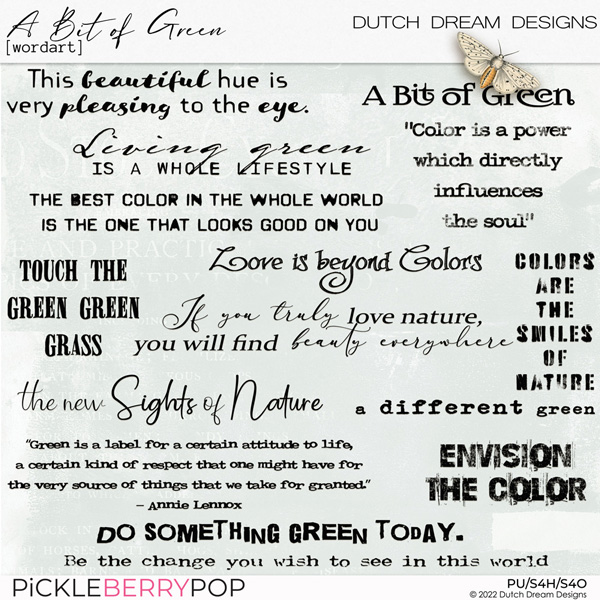 A Bit of Green
[wordart]
DUTCH DREAM DESIGNS
This beautiful hue is
very pleasing to the eye.
A Bit of Green
"Color is a power
which directly
influences
the soul"
Living green
IS A WHOLE LIFESTYLE
THE BEST COLOR IN THE WHOLE WORLD
IS THE ONE THAT LOOKS GOOD ON YOU
TOUCH THE
GREEN GREEN
GRASS
Love is beyond Colors
If you truly love nature,
you will find beauty everywhere
COLORS
ARE
THE
SMILES
OF
NATURE
the new Sights of Nature
a different green
"Green is a label for a certain attitude to life,
a certain kind of respect that one might have for
the very source of things that we take for granted."
– Annie Lennox
ENVISION
THE COLOR
DO SOMETHING GREEN TODAY.
Be the change you wish to see in this world
PiCKLEBERRYPOP
PU/S4H/S4O
©2022 Dutch Dream Designs